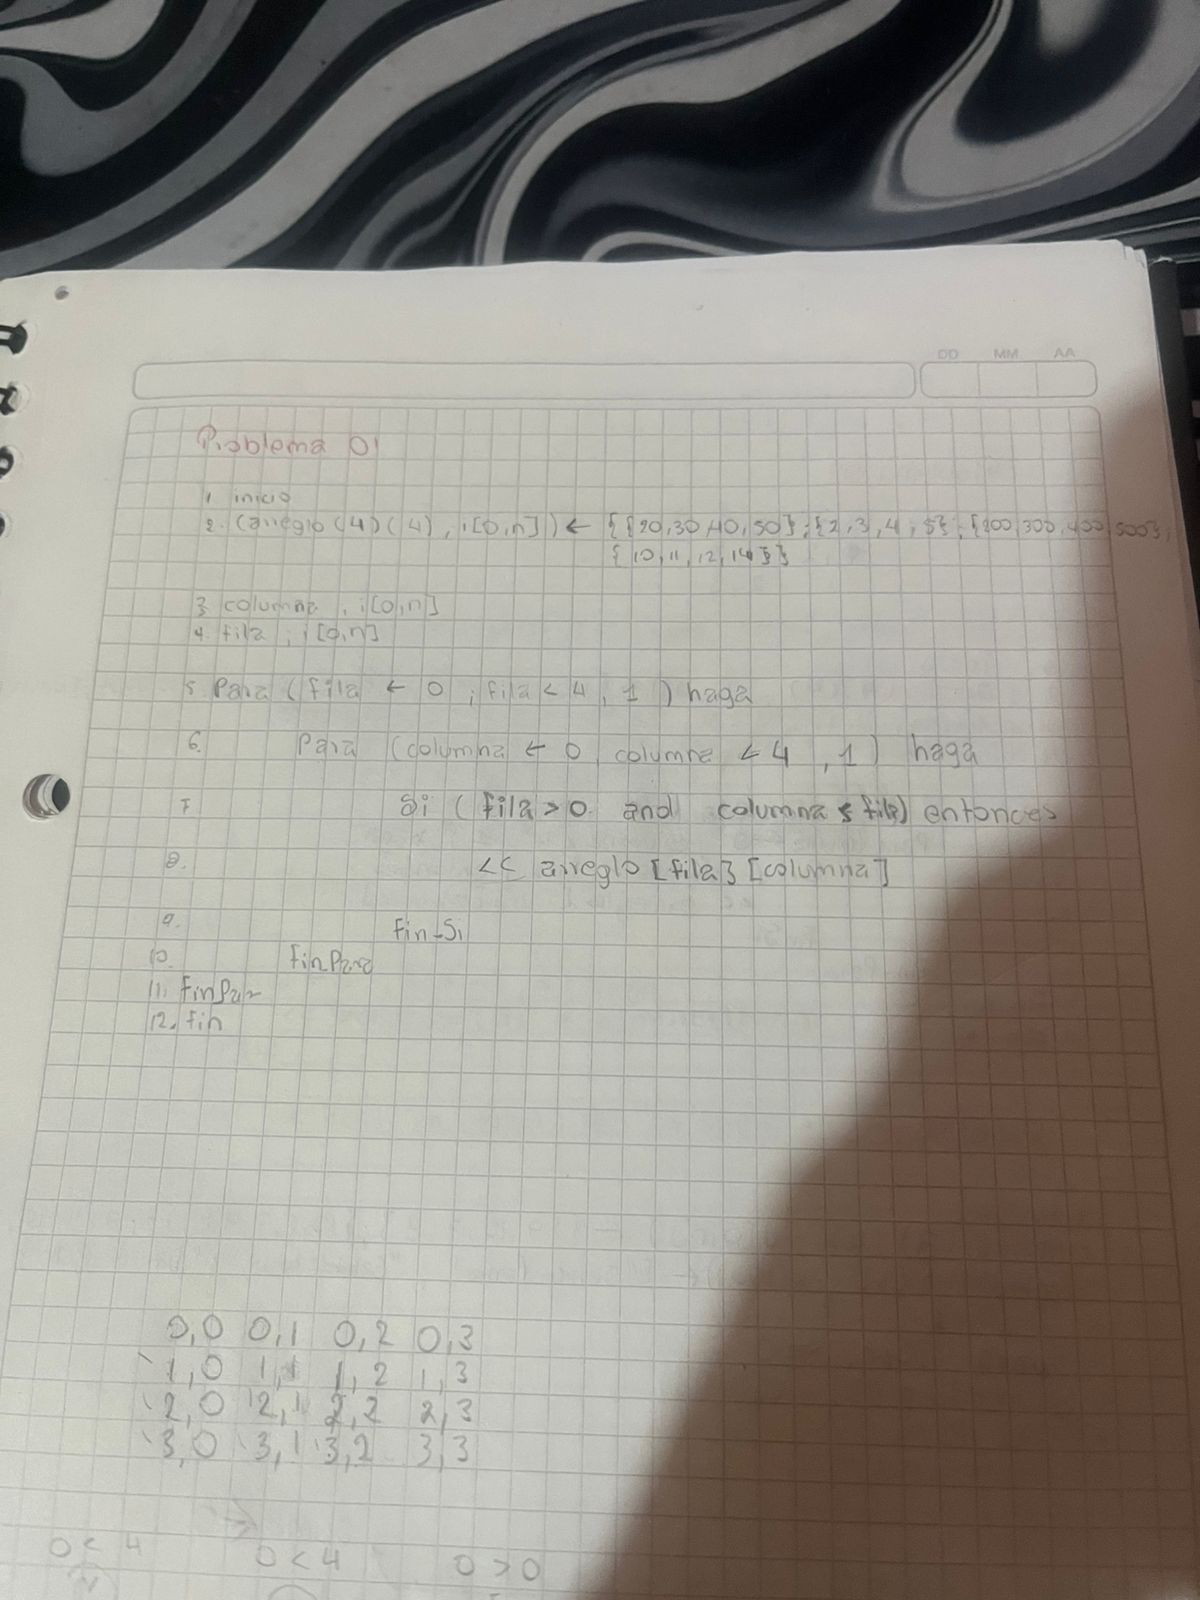 DD MM AA
Problema 01
1. inicio
2. (arreglo (4) (4), i[0,n]) ← {{20,30,40,50};{2,3,4,5};{200,300,400,500};
{10,11,12,14}}
3. columna , i[0,n]
4. fila , i[0,n]
5. Para (fila ← 0 ; fila < 4, 1 ) haga
6. Para (columna ← 0, columna < 4 , 1) haga
7 Si ( fila > 0 and columna < fila) entonces
8. << arreglo [fila] [columna]
9. Fin-Si
10. FinPara
11. FinPara
12. fin
0,0 0,1 0,2 0,3
1,0 1,1 1,2 1,3
2,0 2,1 2,2 2,3
3,0 3,1 3,2 3,3
0 < 4 0 < 4 0 > 0